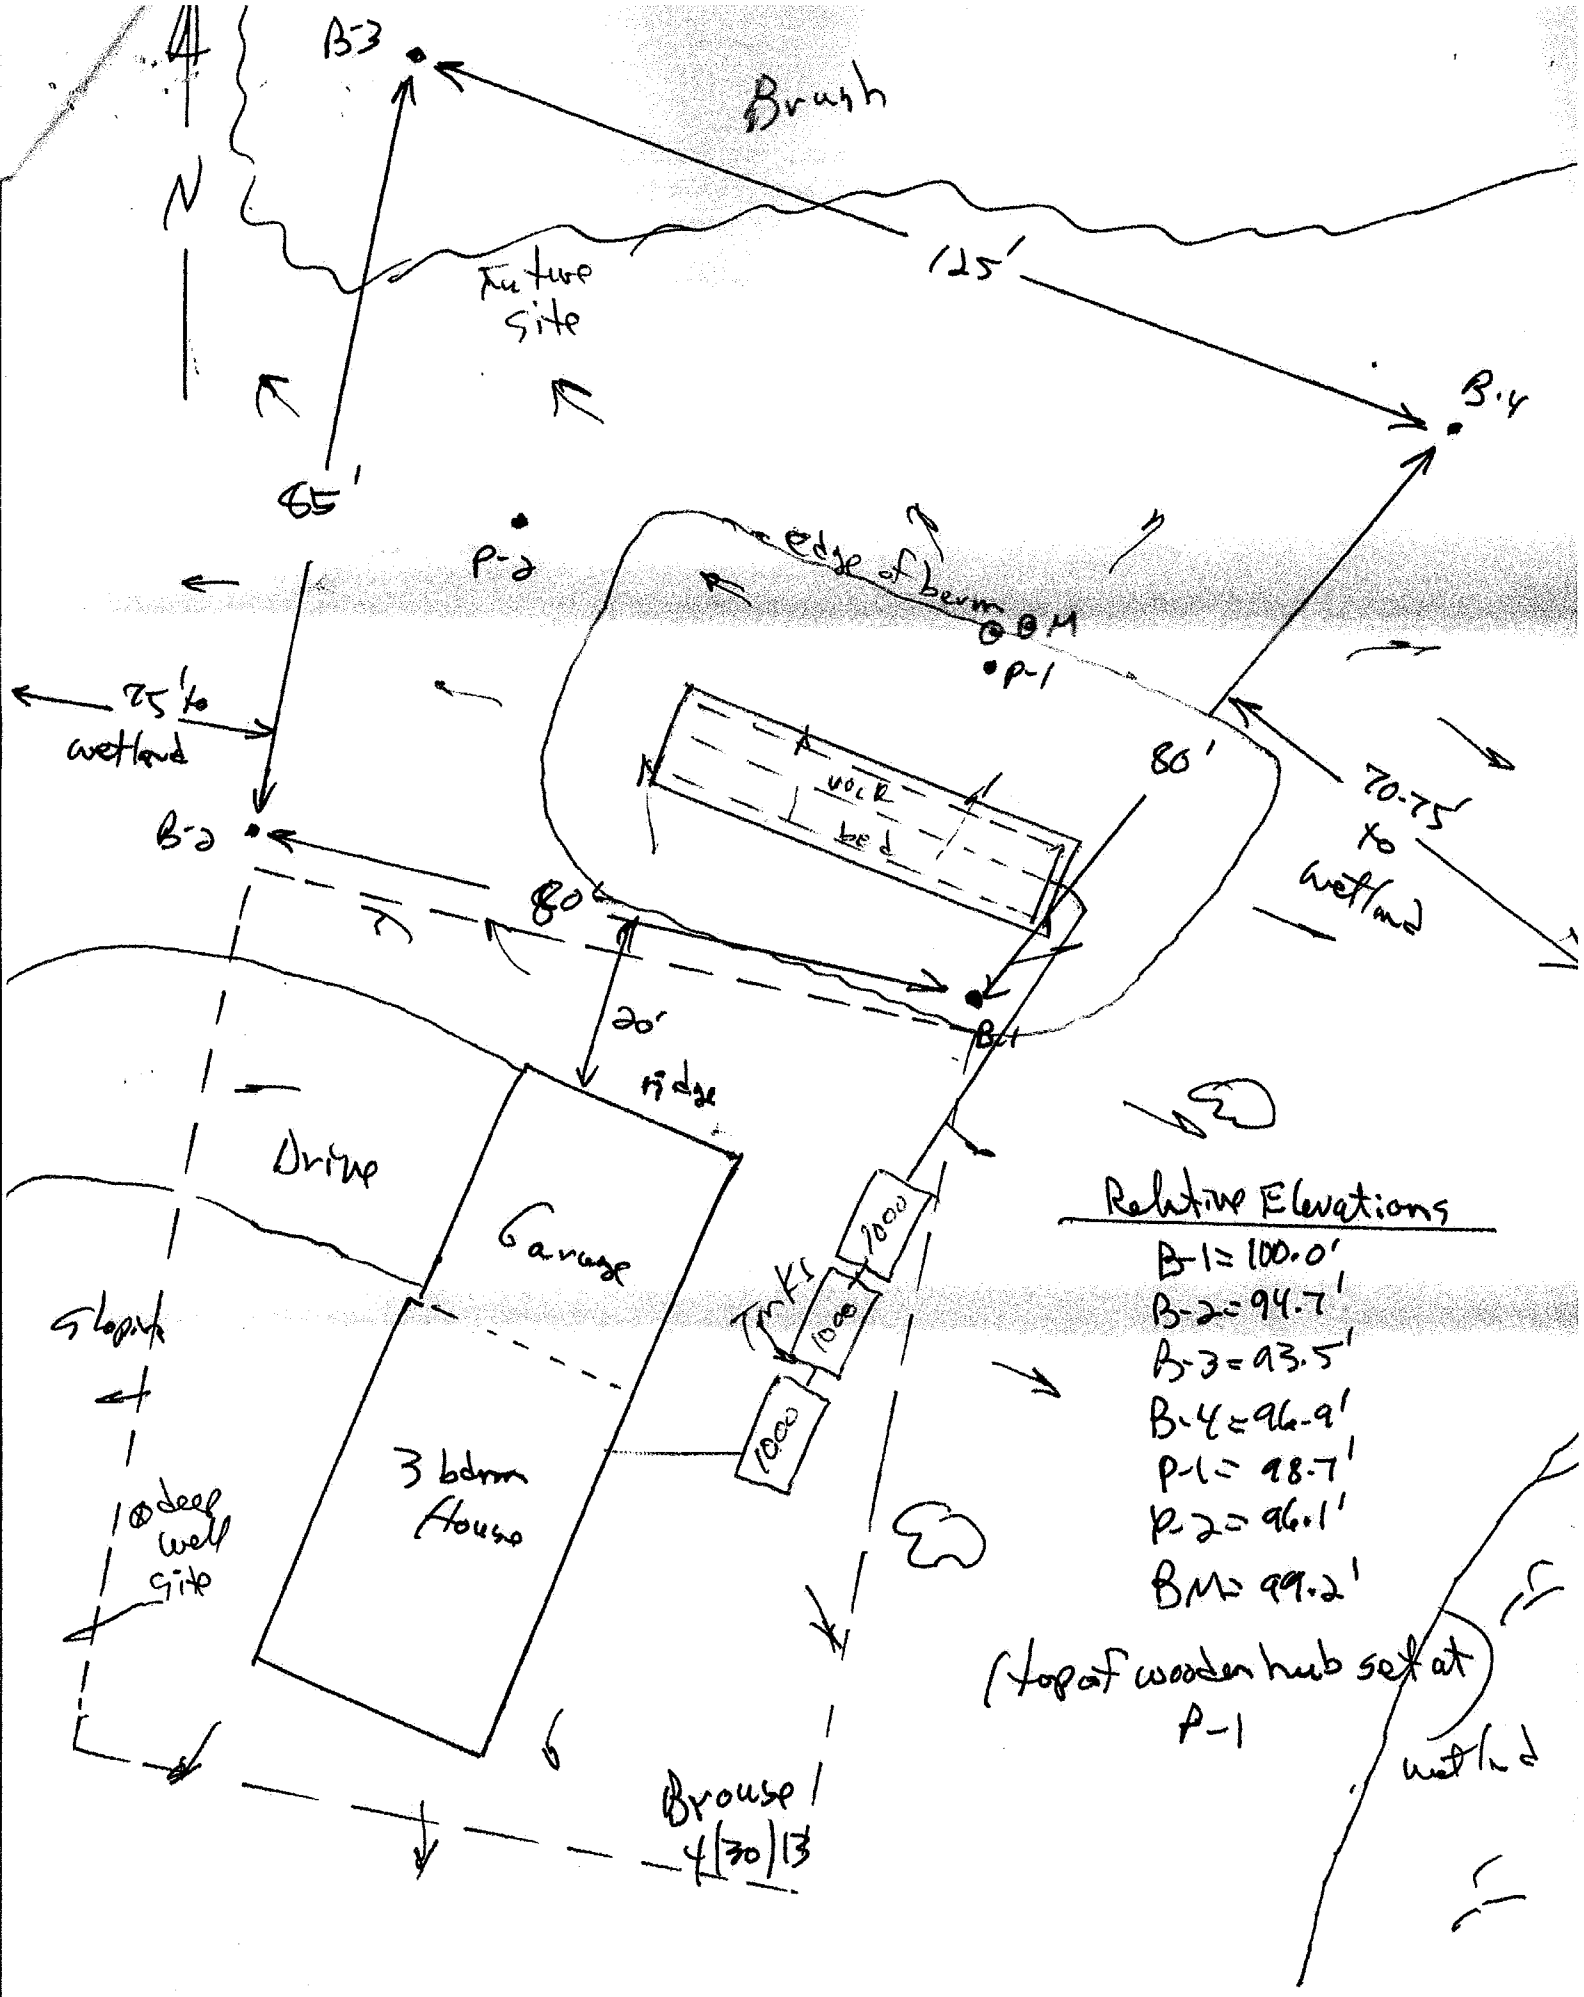 B-3
Brush
N
125'
Future
site
B-4
85'
P-2
edge of berm
BM
P-1
75' to
wetland
80'
rock
bed
70-75'
to
wetland
B-2
80'
B-1
20'
ridge
Drive
Garage
1000
Tanks
1000
1000
3 bdrm
House
deep
well
site
Relative Elevations
B-1= 100.0'
B-2= 94.7'
B-3= 93.5'
B-4= 96.9'
P-1= 98.7'
P-2= 96.1'
BM= 99.2'
(top of wooden hub set at
P-1
wetland
Brouse
4/30/13